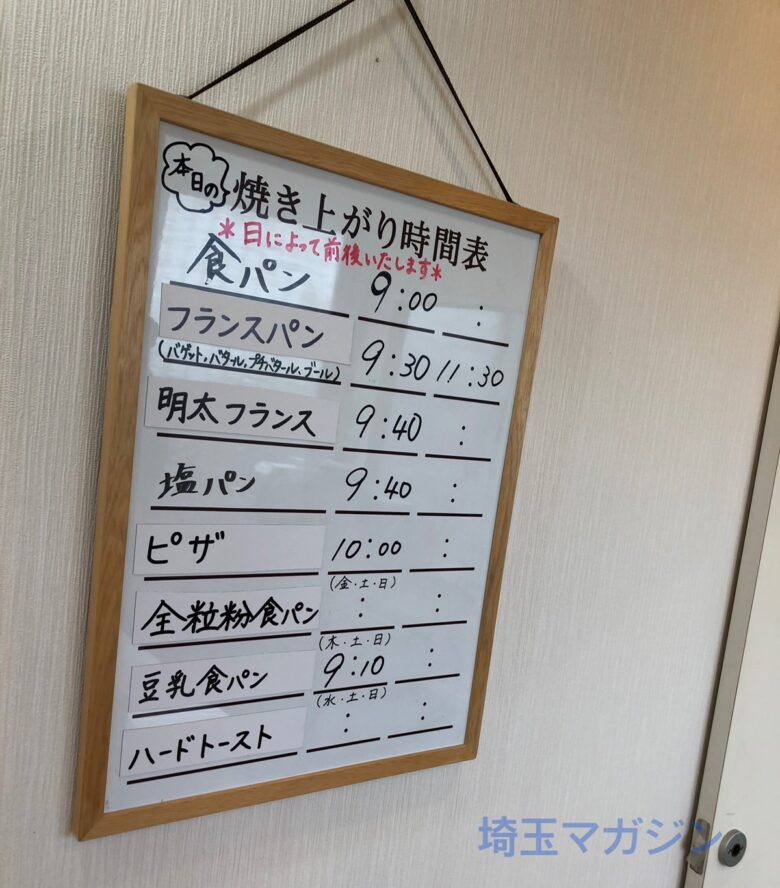 本日の 焼き上がり時間表
＊日によって前後いたします＊
食パン 9:00 :
フランスパン
(バゲット,バタール,プチバタール、ブール) 9:30 11:30
明太フランス 9:40 :
塩パン 9:40 :
ピザ 10:00 :
(金・土・日)
全粒粉食パン : :
(木・土・日)
豆乳食パン 9:10 :
(水・土・日)
ハードトースト : :
埼玉マガジン